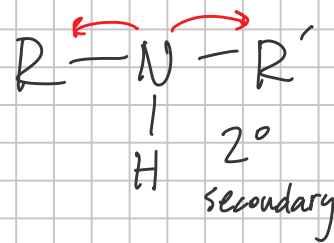 R — N — R′
H
2°
secondary